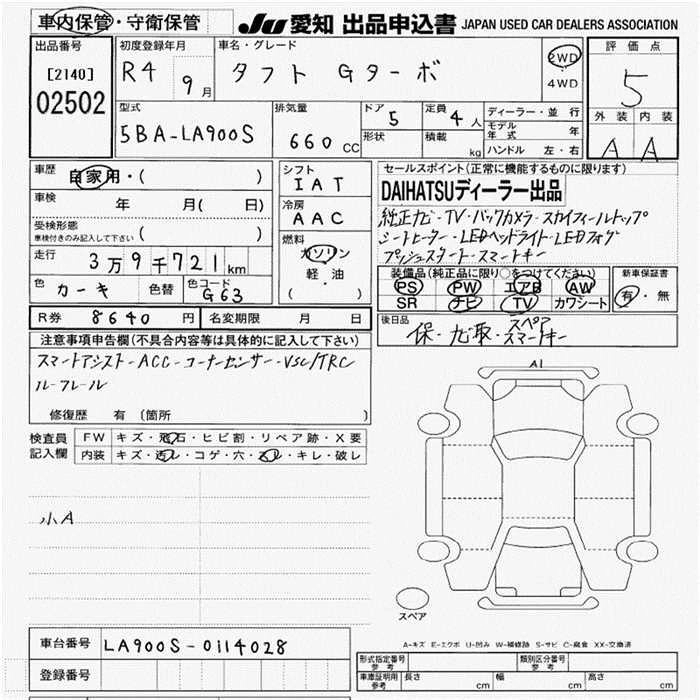 車内保管・守衛保管
JU 愛知 出品申込書 JAPAN USED CAR DEALERS ASSOCIATION
出品番号
[2140]
02502
初度登録年月
R4 9月
車名・グレード
タフト Gターボ
2WD
・
4WD
評価点
5
外装 内装
A A
型式
5BA-LA900S
排気量
660 CC
ドア 5
形状
定員 4人
積載 kg
ディーラー・並行
モデル年式 年
ハンドル 左・右
車歴 自家用・( )
車検 年 月( 日)
受検形態
車検付きのみ記入して下さい ( )
走行 3万9千721km
色 カーキ 色替 色コード G63
シフト
IAT
冷房
AAC
燃料
ガソリン
軽・油
( )
セールスポイント(正常に機能するものに限ります)
DAIHATSUディーラー出品
純正ナビ・TV・バックカメラ・スカイフィールトップ
シートヒーター・LEDヘッドライト・LEDフォグ
プッシュスタート・スマートキー
装備品(純正品に限り○をつけてください)
PS PW エアB AW
SR ナビ TV カワシート
新車保証書
有・無
R券 8640円 名変期限 月 日
後日品
保・ナビ取・スペアスマートキー
注意事項申告欄(不具合内容等は具体的に記入して下さい)
スマートアシスト・ACC・コーナーセンサー・VSC/TRC
ルーフレール
修復歴 有(箇所 )
検査員記入欄
FW キズ・飛石・ヒビ割・リペア跡・X要
内装 キズ・汚レ・コゲ・穴・スレ・キレ・破レ
小A
A1
スペア
A-キズ E-エクボ U-凹み W-補修跡 S-サビ C-腐食 XX-交換済
車台番号 LA900S-0114028
登録番号
形式指定番号 参考
類別区分番号 参考
車庫証明用 参考 長さ cm 幅 cm 高さ cm